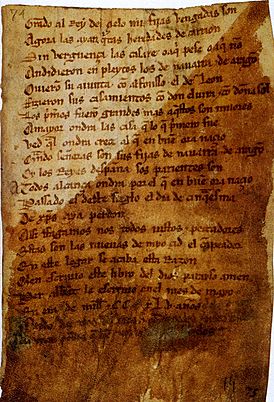 74
Grado al Rey del çielo mis fijas vengadas son
Agora las ayan q̃tas heredades de carrion
Sin verguença las casare o aq̃ pese o aq̃ nõ
Andidieron en pleytos los de nauarra ⁊ de aragõ
Ouierõ su aiunta cõ alfonsso el de leon
Fizieron sus casamientos cõ don eluira ⁊ cõ doña sol
Los p̃meros fueron grandes mas aq̃stos son miiores
A mayor ondra las casa q̃ lo q̃ p̃mero fue
Ved q̃l ondra creçe al q̃ en buẽ ora naçio
Quãdo señoras son sus fijas de nauarra ⁊ de aragõ
Oy los Reyes despaña sos parientes son
A Todos alcança ondra por el q̃ en buẽ ora naçio
Passado es deste sieglo el dia de cinq̃esma
De xp̃s aya perdon
Assi ffagamos nos todos iustos ⁊ peccadores
Estas son las nueuas de myo çid el canpeador
En este logar se acaba esta razon
Quien escriuio este libro del dios parayso amen
Per abbat le escriuio en el mes de mayo
En era de mill ⁊ .C.C. xL.v. años